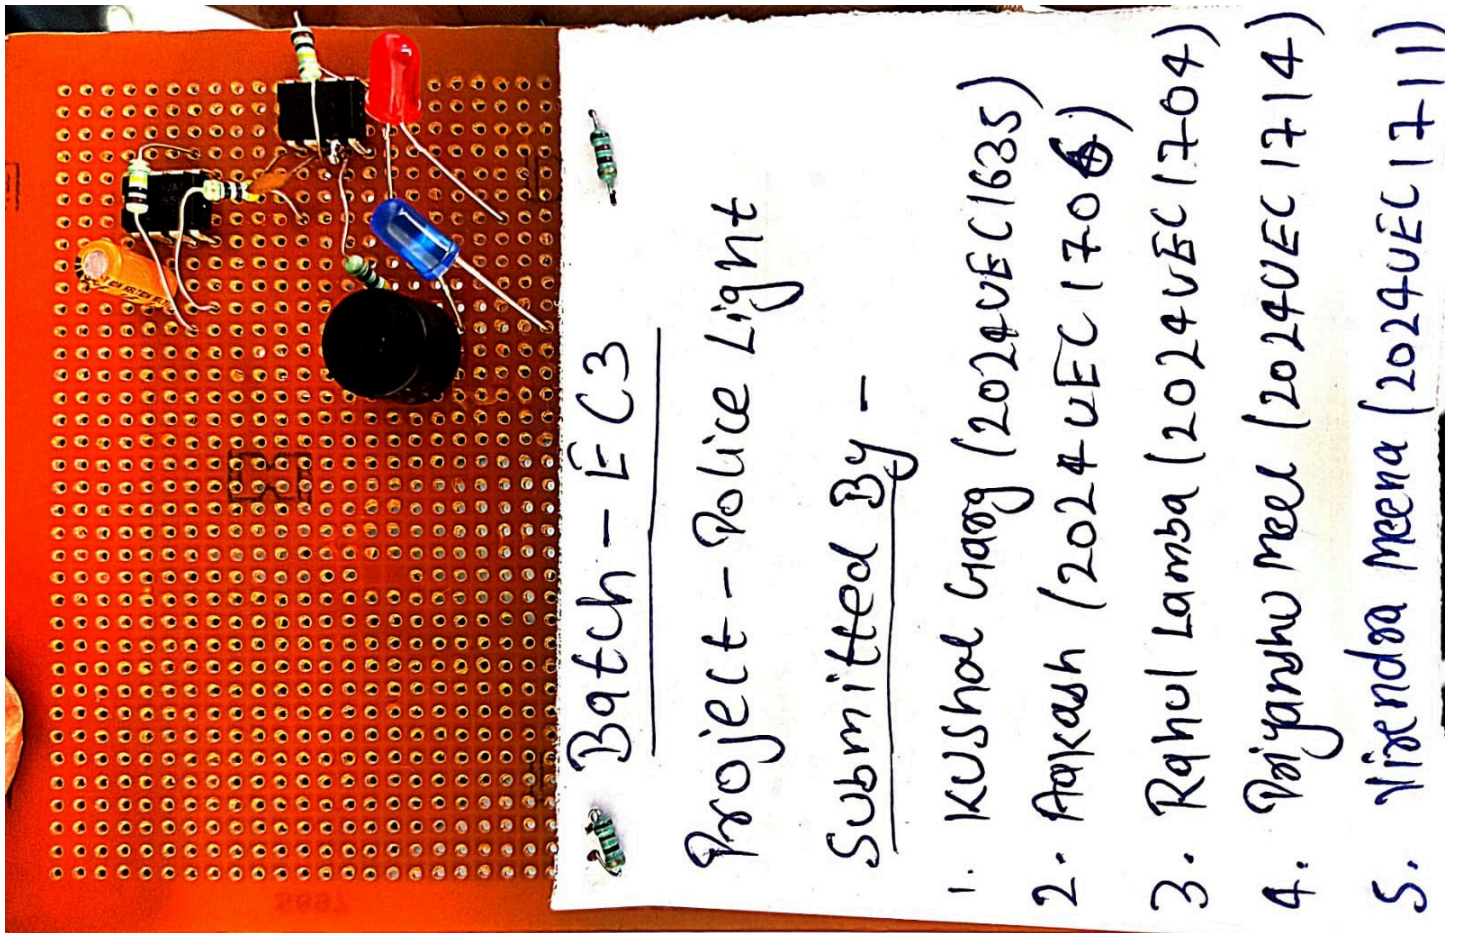 Batch - EC3
Project - Police Light
Submitted By -
1. Kushal Garg (2024UEC1635)
2. Aakash (2024UEC1706)
3. Rahul Lamba (2024UEC1704)
4. Priyanshu Meel (2024UEC1714)
5. Virendra Meena (2024UEC1711)